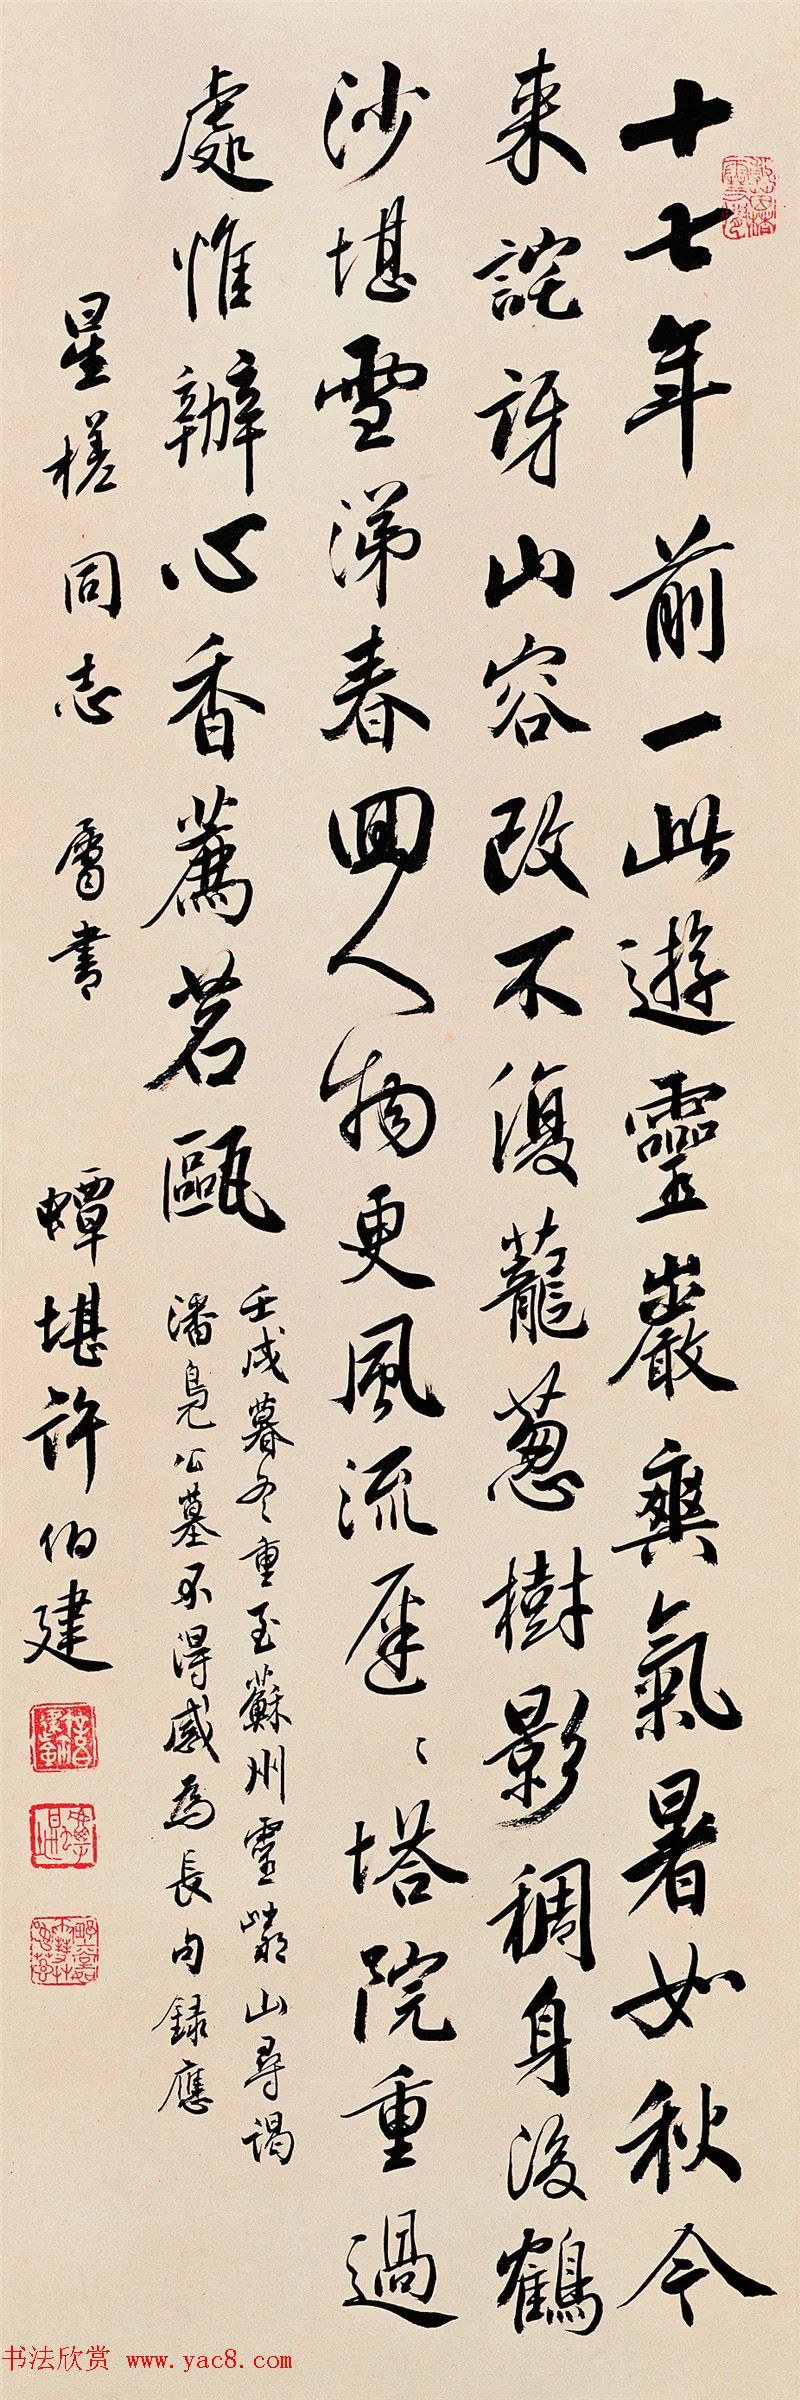 十七年前一此遊靈巖爽氣暑如秋今
来詫訝山容改不復蘢蔥樹影稠身後鶴
沙堪雪涕春回人物更風流屧ヽ塔院重過
處惟辦心香薦茗甌
壬戌暮冬重至蘇州靈巖山尋謁
潘鳧公墓不得感為長句録應
星槎同志 屬書 蟫堪許伯建
书法欣赏 www.yac8.com